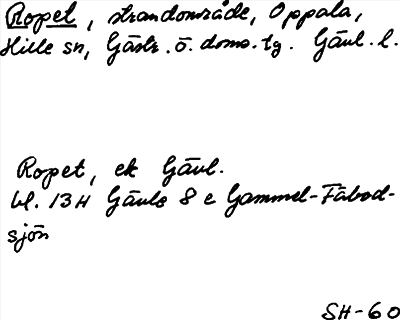 Ropet, strandområde, Oppala,
Hille sn, Gästr. ö. doms. tg. Gävl. l.
Ropet, ek Gävl.
bl. 13H Gävle 8 e Gammel-Fäbod-
sjön
SH-60